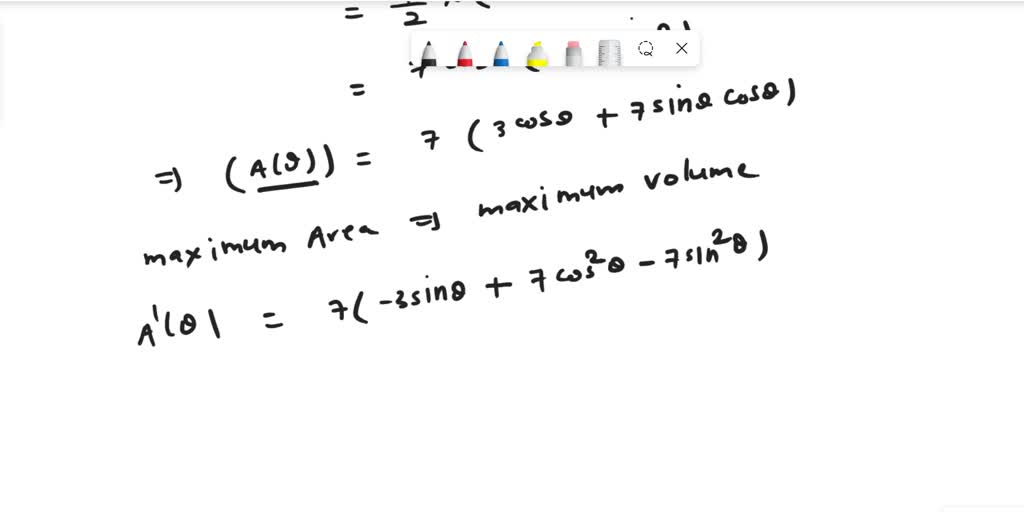 = 1/2
=
⇒ (A(θ)) = 7 (3 cosθ + 7 sinθ cosθ)
maximum Area ⇒ maximum volume
A'(θ) = 7(-3 sinθ + 7 cos²θ - 7 sin²θ)